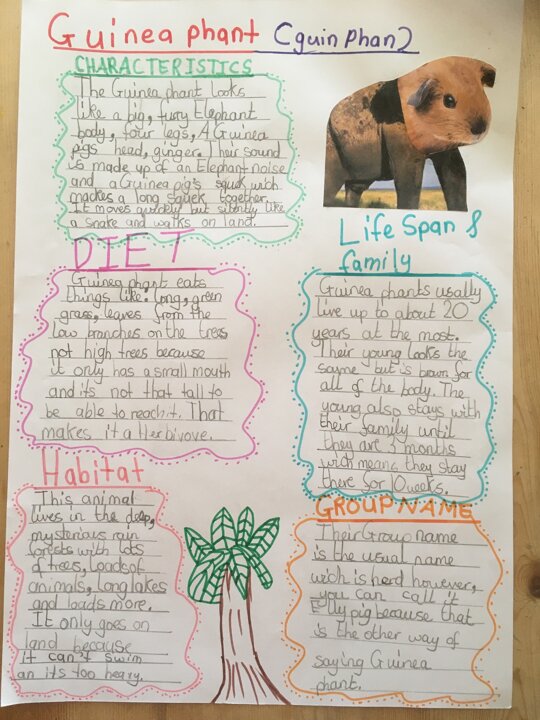 Guinea phant (guin phan)
CHARACTERISTICS
The Guinea phant looks
like a pig, fury Elephant
body, four legs, A Guinea
pigs head, ginger. Their sound
is made up of an Elephant noise
and a Guinea pig's squk wich
mackes a long squek together.
It moves quickely but silently like
a snake and walks on land.
DIET
Guinea phant eats
things like: long, green
grass, leaves from the
low branches on the trees
not high trees because
it only has a small mouth
and its not that tall to
be able to reach it. That
makes it a Herbivove.
Habitat
This animal
lives in the deep,
mysterious rain
forests with lots
of trees, loads of
animals, long lakes
and loads more.
It only goes on
land because
it can't swim
an its too heavy.
Life Span &
family
Guinea phants usally
live up to about 20
years at the most.
Their young looks the
sayme but is brown for
all of the body. The
young also stays with
their family until
they are 3 months
wich means they stay
there for 10 weeks.
GROUP NAME
Their Group name
is the usual name
wich is herd however,
you can call it
Elly pig because that
is the other way of
saying Guinea
phant.